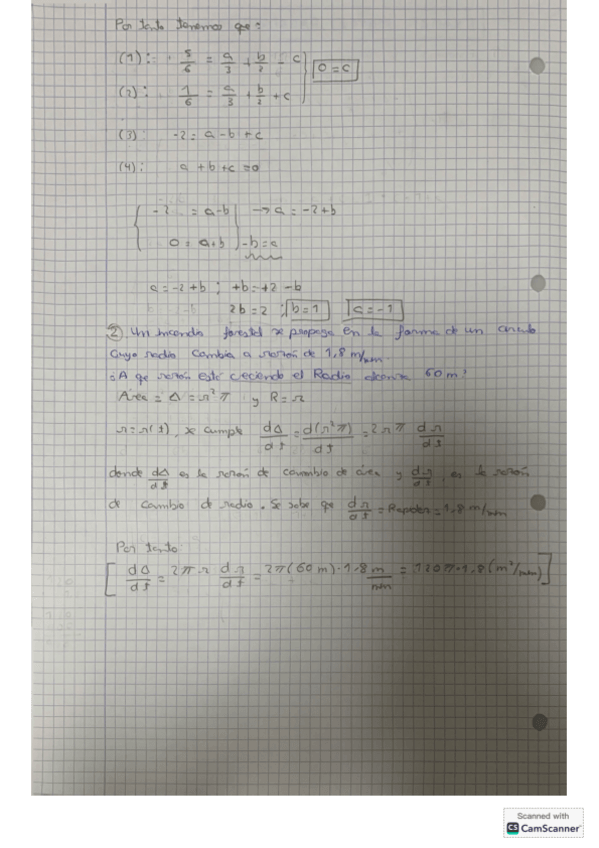 Por tanto tenemos que:
(1): 5/6 = a/3 + b/2 - c
0 = c
(2): 1/6 = a/3 + b/2 + c
(3) -2 = a - b + c
(4): a + b + c = 0
-2 = a-b → a = -2+b
0 = a+b -b = a
a = -2+b ; +b = +2 -b
2b = 2 ; b = 1 a = -1
② Un incendio forestal se propaga en la forma de un circulo
cuyo radio cambia a razón de 1,8 m/min.
¿A qe razón esté creciendo el Radio alcanza 60 m?
Area = Δ = r² π y R = r
r = r(t), se cumple dΔ/dt = d(r²π)/dt = 2rπ dr/dt
donde dΔ/dt es la razón de cambio de area y dr/dt, es la razón
de cambio de radio. Se sabe que dr/dt = Rapidez = 1,8 m/min
Por tanto
[dΔ/dt = 2π r dr/dt = 2π(60 m)·1,8 m/min = 120π·1,8 (m²/min)]
Scanned with
CS CamScanner